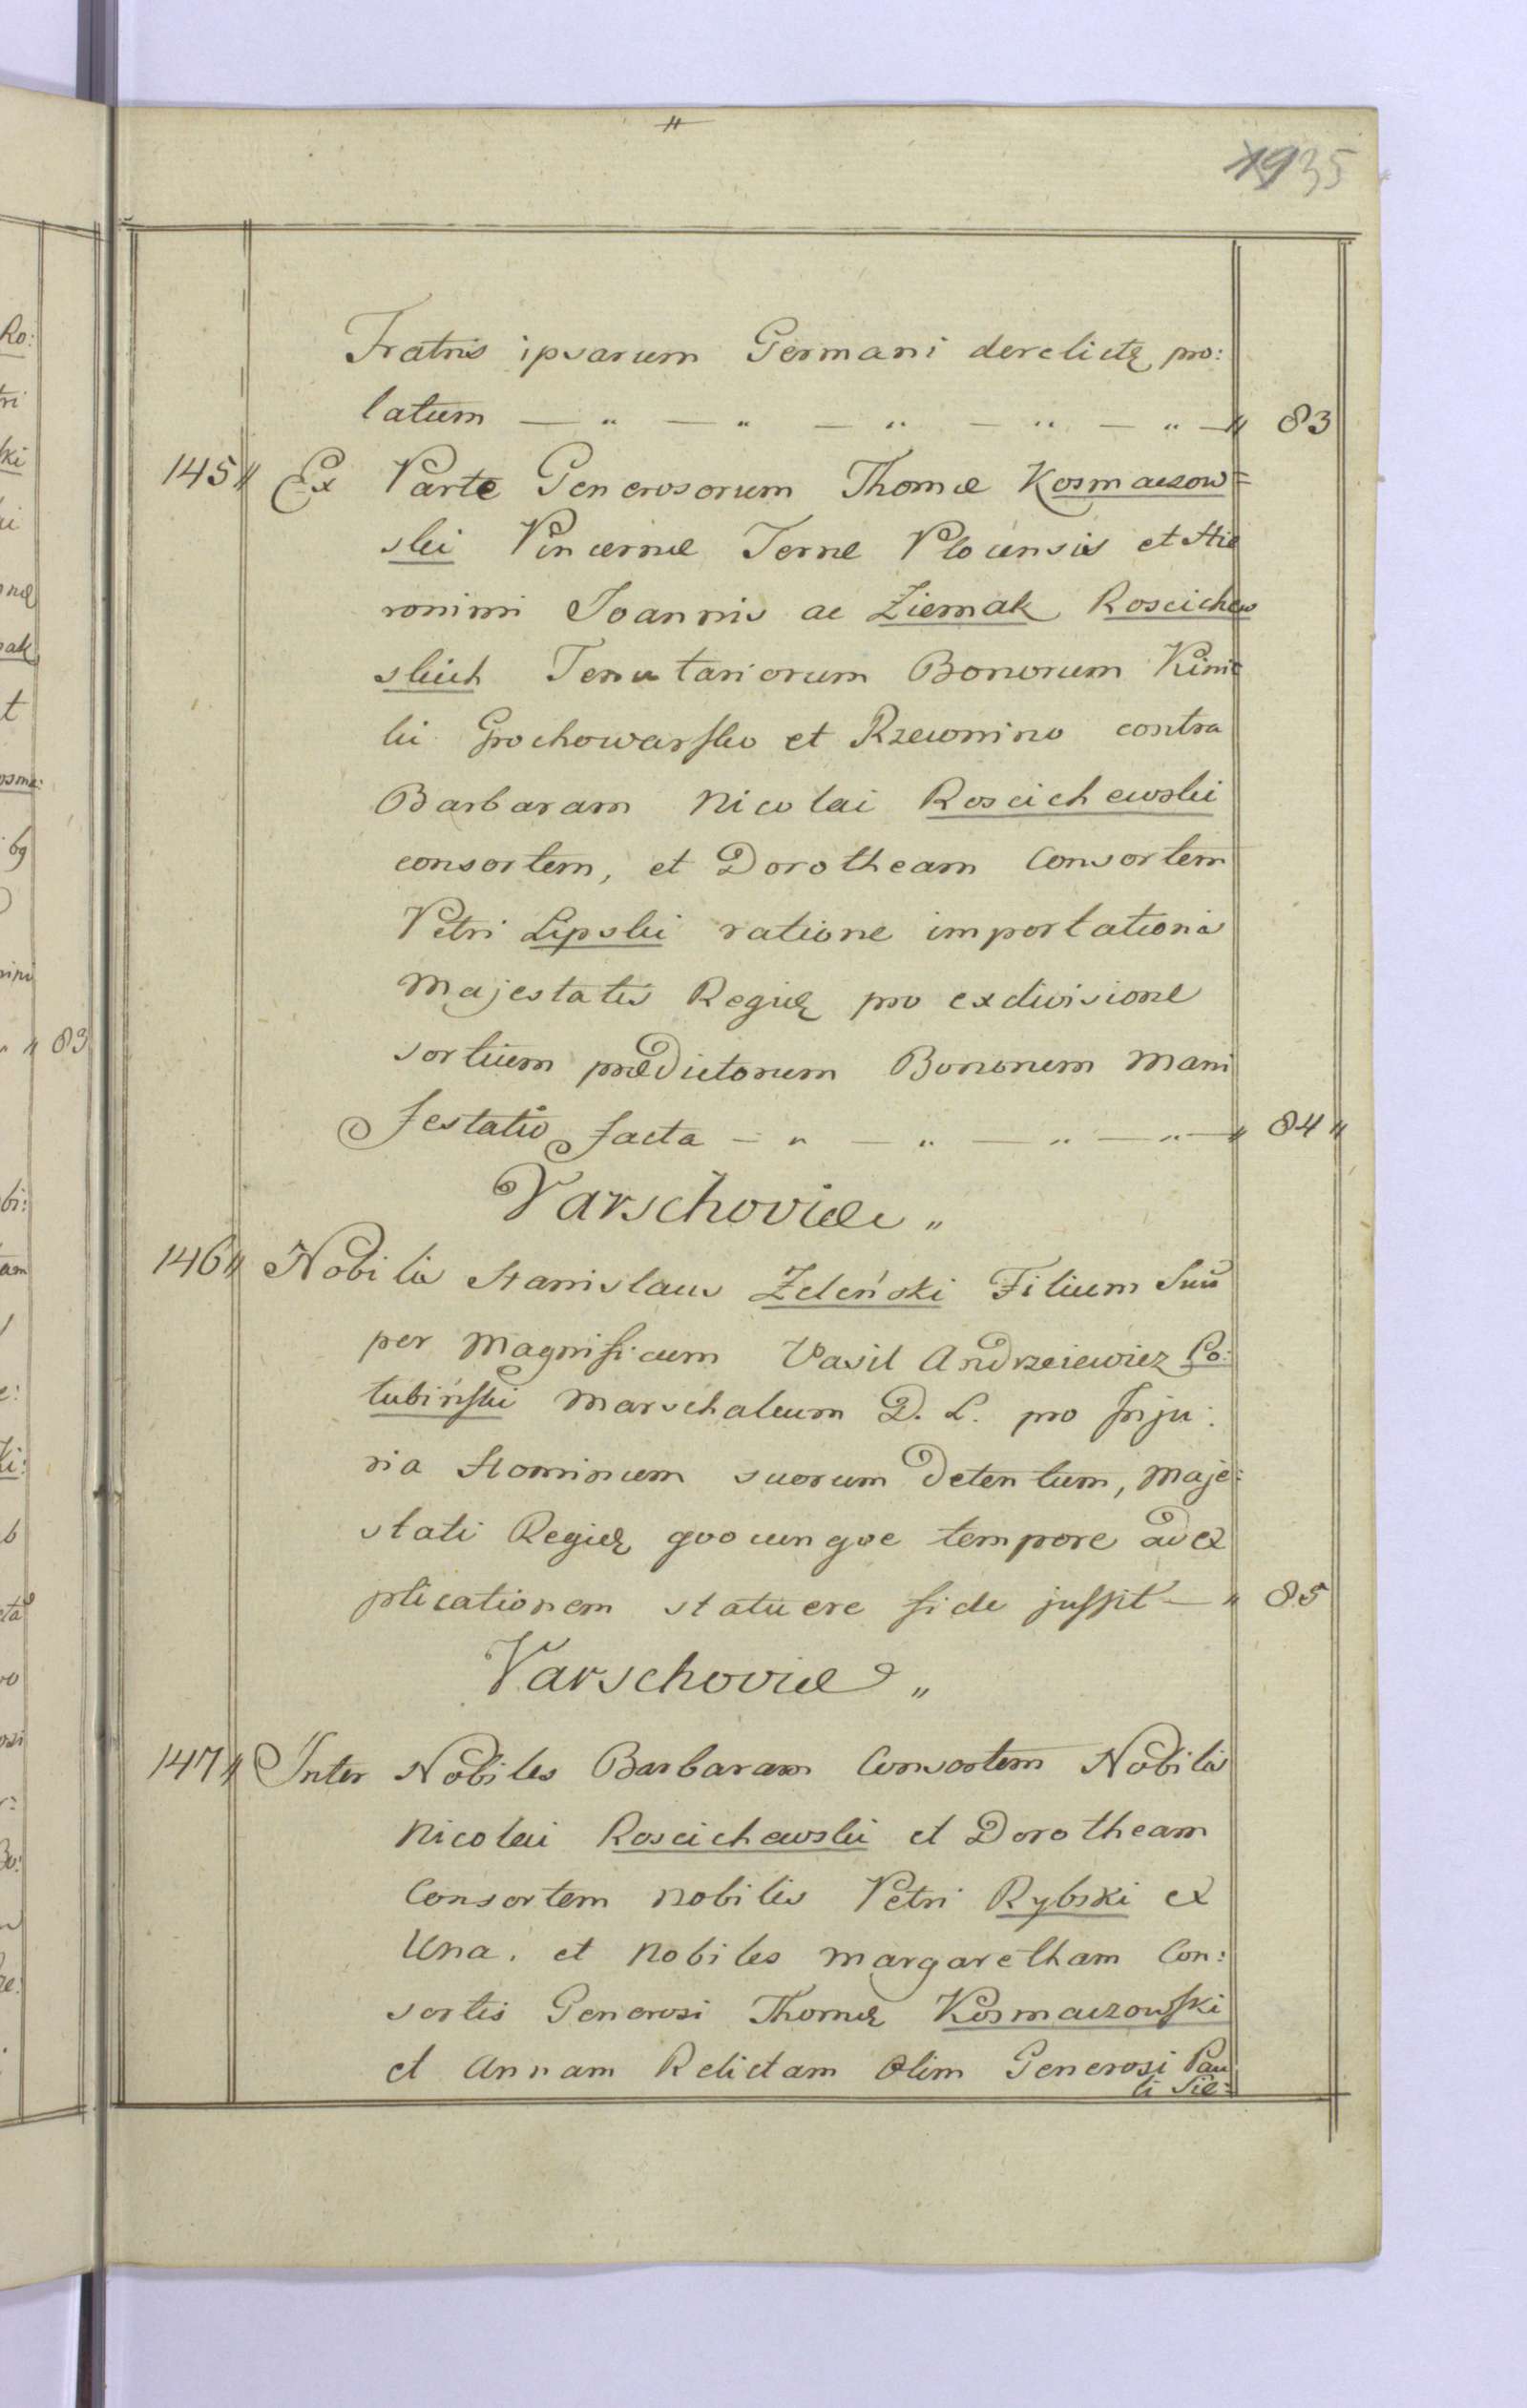 1935
Fratris ipsarum Germani derelictę pro:
latum — " — " — " — " — " — " 83
145 Ex Parte Generosorum Thomæ Kosmaczow=
ski Pincernæ Terræ Plocensis et Hie
ronimi Joannis ac Ziemak Roscichew
skich Tenutariorum Bonorum Kinic
ki Grochowarsko et Rzewnino contra
Barbaram Nicolai Roscichewski
consortem, et Dorotheam Consortem
Petri Lipski ratione importationis
Majestatis Regię pro exdivisione
sortium prædictorum Bonorum Mani
festatio facta — " — " — " — " — " 84 "
Varschoviæ "
146 " Nobilis Stanislaus Zeleński Filium Suū
per Magnificum Vasil Andrzeiewicz Po:
tubiński Marschalcum D. L. pro Inju:
ria Hominum suorum Detentum, Maje:
stati Regię qvocunqve tempore ad ex
plicationem statuere fide jussit — " 85
Varschoviæ "
147 " Inter Nobiles Barbaram Consortem Nobilis
Nicolai Roscichewski et Dorotheam
Consortem Nobilis Petri Rybski ex
Una. et Nobiles Margaretham Con:
sortis Generosi Thomę Kosmaczowski
et Annam Relictam Olim Generosi Pau
li Sie=